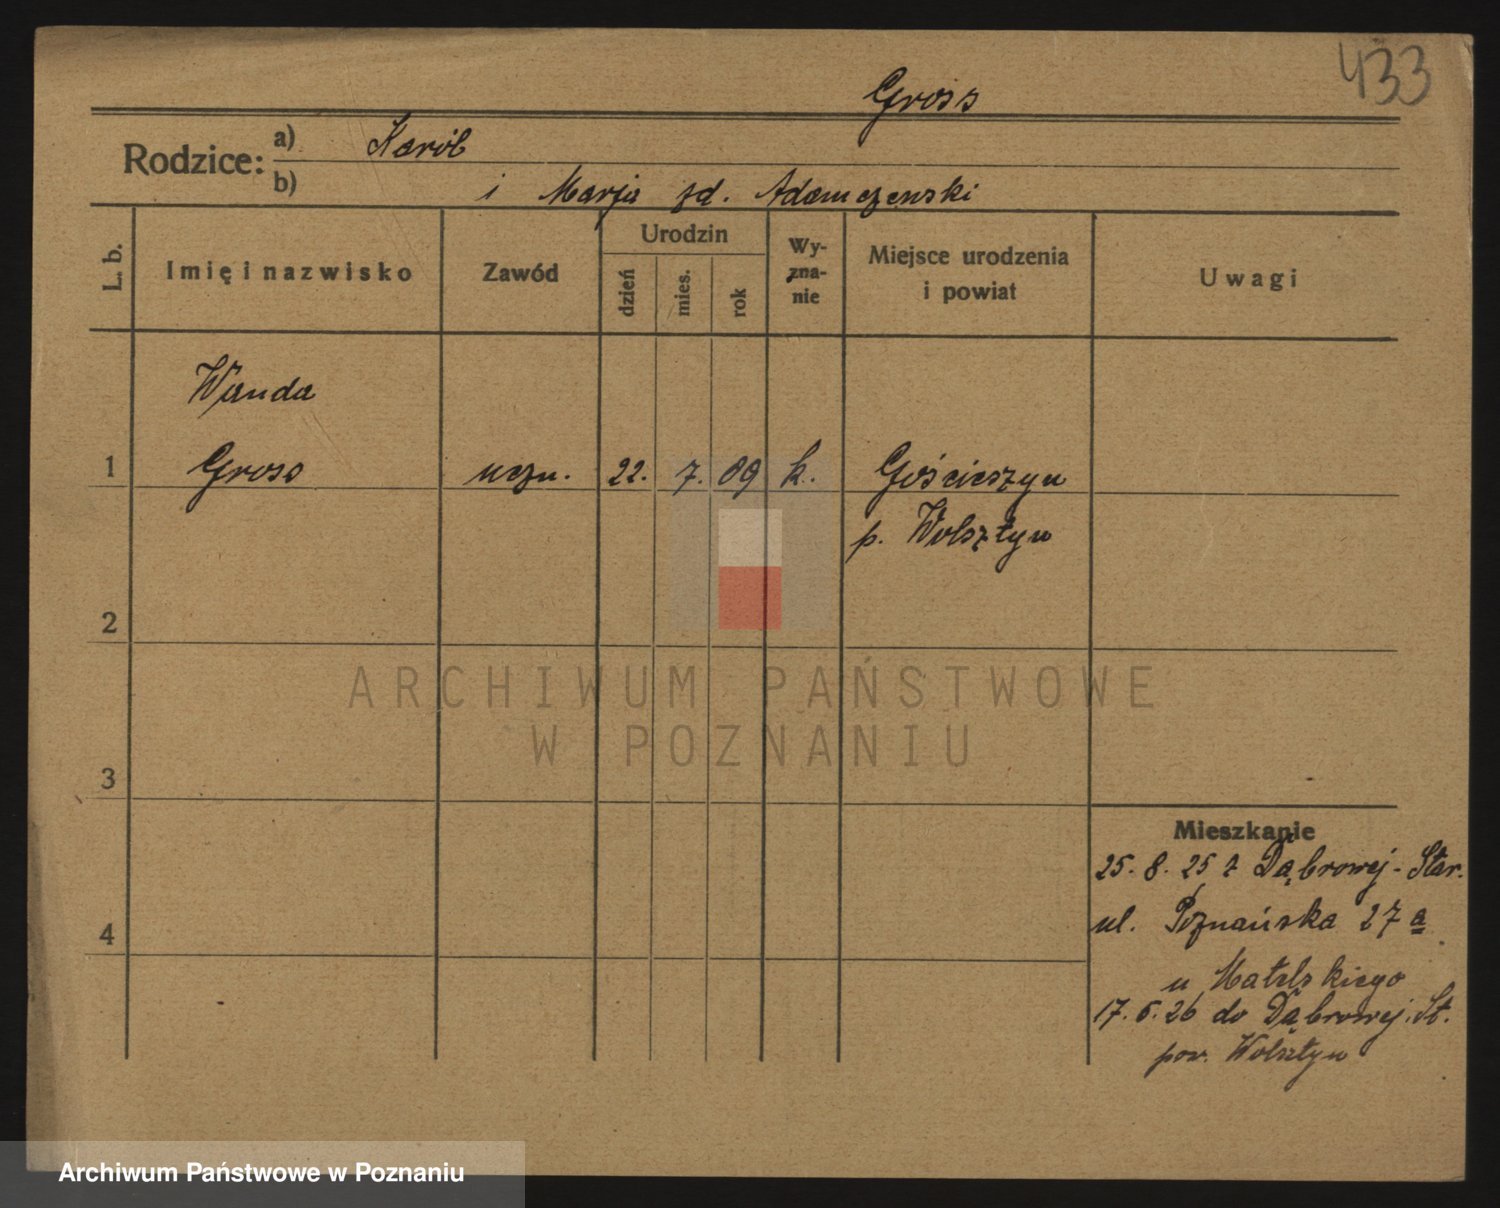 433
Gross
Rodzice:
a) Karól
b) i Marja zd. Adamczewski
L. b.
Imię i nazwisko
Zawód
Urodzin
dzień
mies.
rok
Wy-
zna-
nie
Miejsce urodzenia
i powiat
Uwagi
Wanda
1 Gross uczn. 22. 7. 09 k. Gościeszyn
p. Wolsztyn
2
ARCHIWUM PAŃSTWOWE
W POZNANIU
3
Mieszkanie
25. 8. 25 z Dąbrowej-Star.
4
ul. Poznańska 27 a
u Matelskiego
17. 6. 26 do Dąbrowej. St.
pow. Wolsztyn
Archiwum Państwowe w Poznaniu